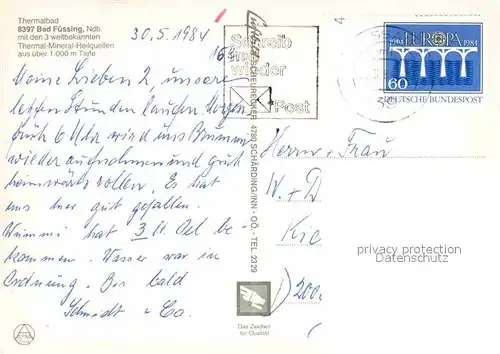 Thermalbad
8397 Bad Füssing, Ndb.
mit den 3 weltbekannten
Thermal-Mineral-Heilquellen
aus über 1.000 m Tiefe
30.5.1984
Meine Lieben 2, unsere
letzten Stunden laufen. Morgen
früh 6 Uhr wird uns Brummi
wieder aufnehmen und gut
heimwärts rollen. Es hat
uns hier gut gefallen.
hat 3 Oel be-
kommen. Wasser war in
Ordnung. Bis bald
Schmidt + Co.
Schreib
mal
wieder
Post
4780 SCHÄRDING/INN - OÖ. - TEL. 2329
Das Zeichen
für Qualität
1959 EUROPA 1984
60
DEUTSCHE BUNDESPOST
Herrn + Frau
W. + D
Kie
D 2000
privacy protection
Datenschutz